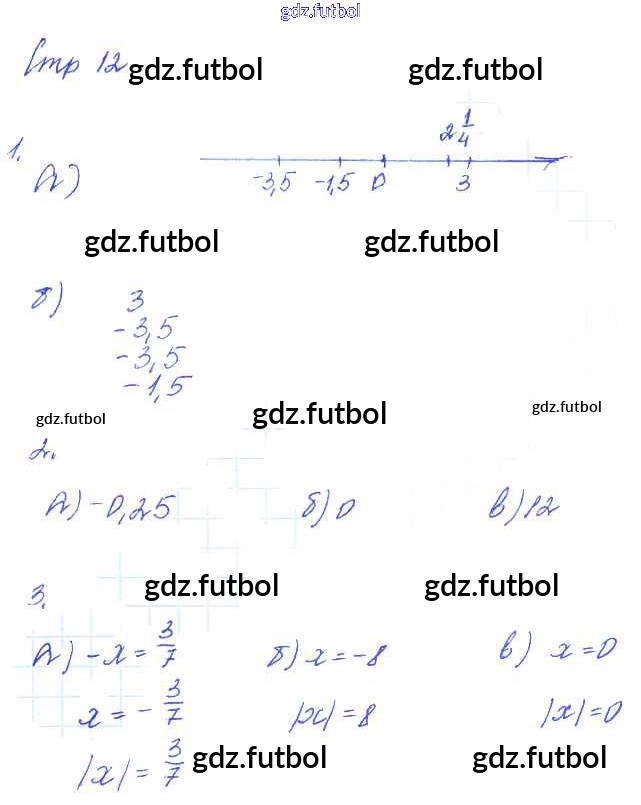 gdz.futbol
Стр 12
gdz.futbol gdz.futbol
1.
А)
2 1/4
-3,5 -1,5 0 3
gdz.futbol gdz.futbol
б) 3
-3,5
-3,5
-1,5
gdz.futbol gdz.futbol gdz.futbol
2.
А) -0,25 б) 0 в) 12
3.
gdz.futbol gdz.futbol
А) -x = 3/7 б) x = -8 в) x = 0
x = - 3/7 |x| = 8 |x| = 0
|x| = 3/7
gdz.futbol gdz.futbol